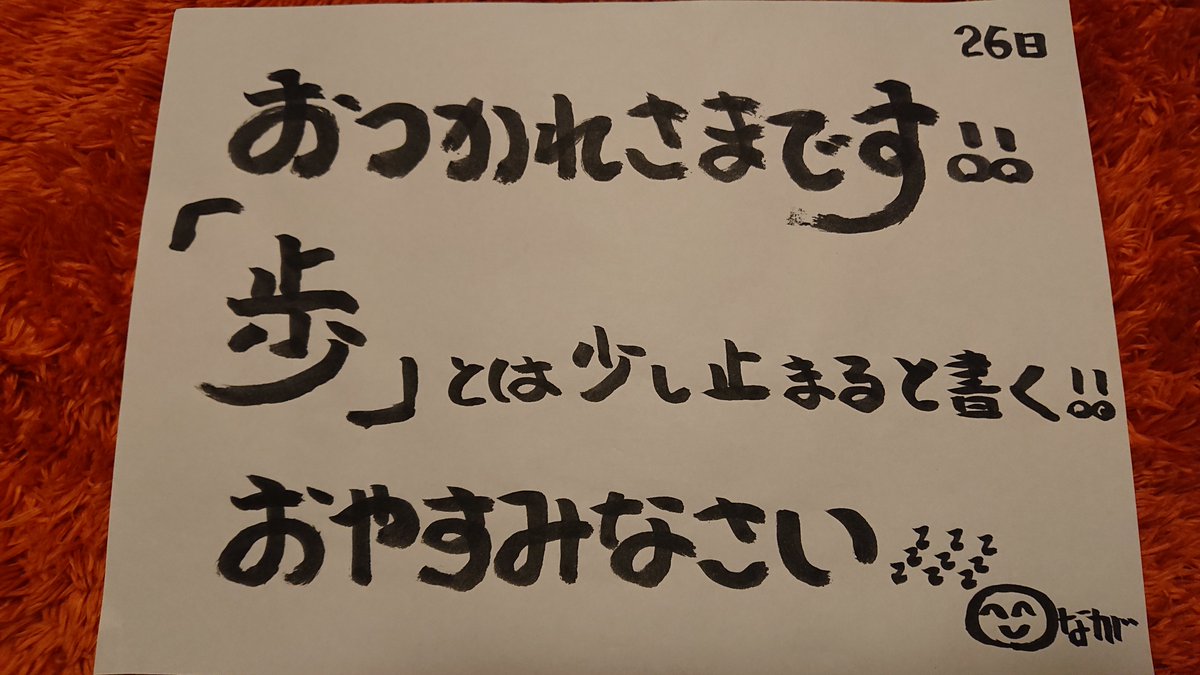 26日
おつかれさまです!!
「歩」とは少し止まると書く!!
おやすみなさい zzzzzzzzz
なが